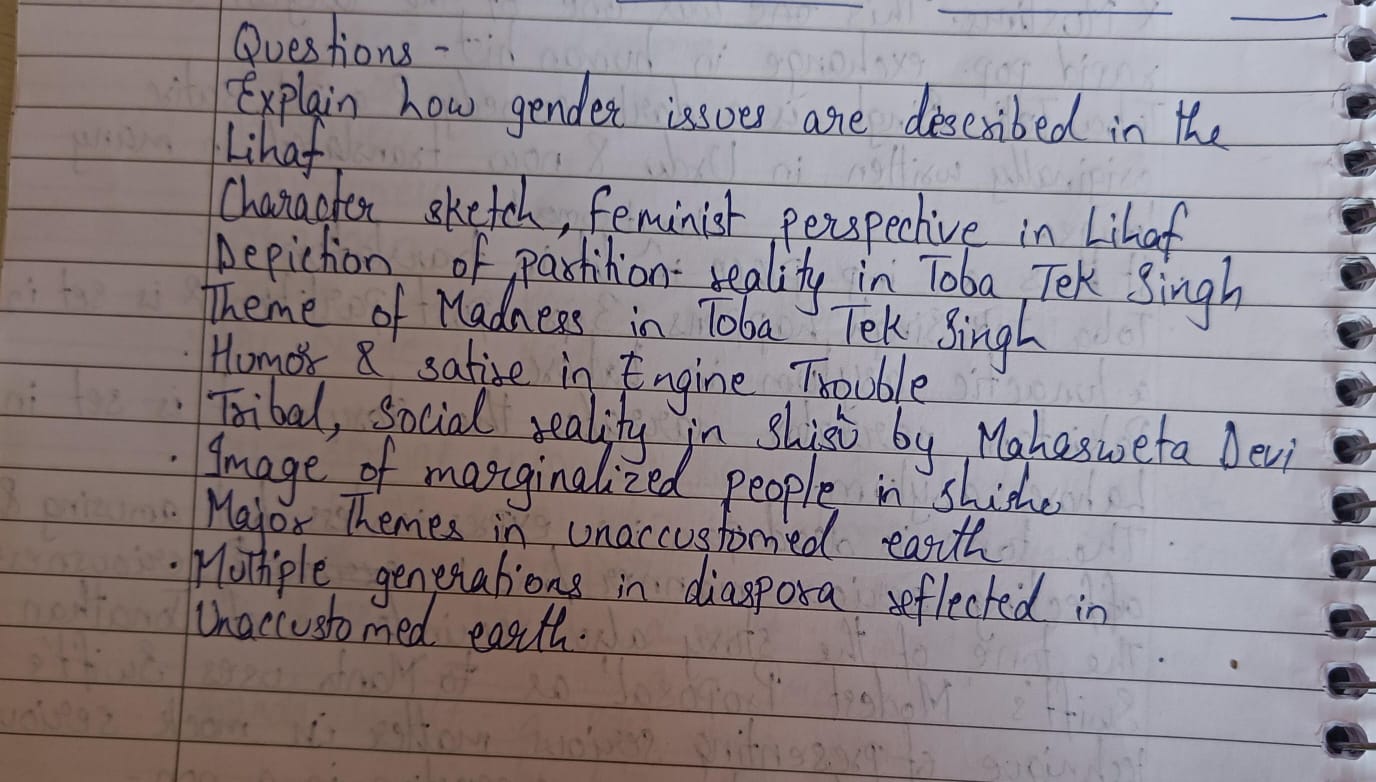 Questions -
Explain how gender issues are described in the
Lihaf
Character sketch, feminist perspective in Lihaf
Depiction of partition reality in Toba Tek Singh
Theme of Madness in Toba Tek Singh
Humor & satire in Engine Trouble
Tribal, Social reality in Shishu by Mahasweta Devi
Image of marginalized people in Shishu
Major Themes in unaccustomed earth
Multiple generations in diaspora reflected in
Unaccustomed earth.